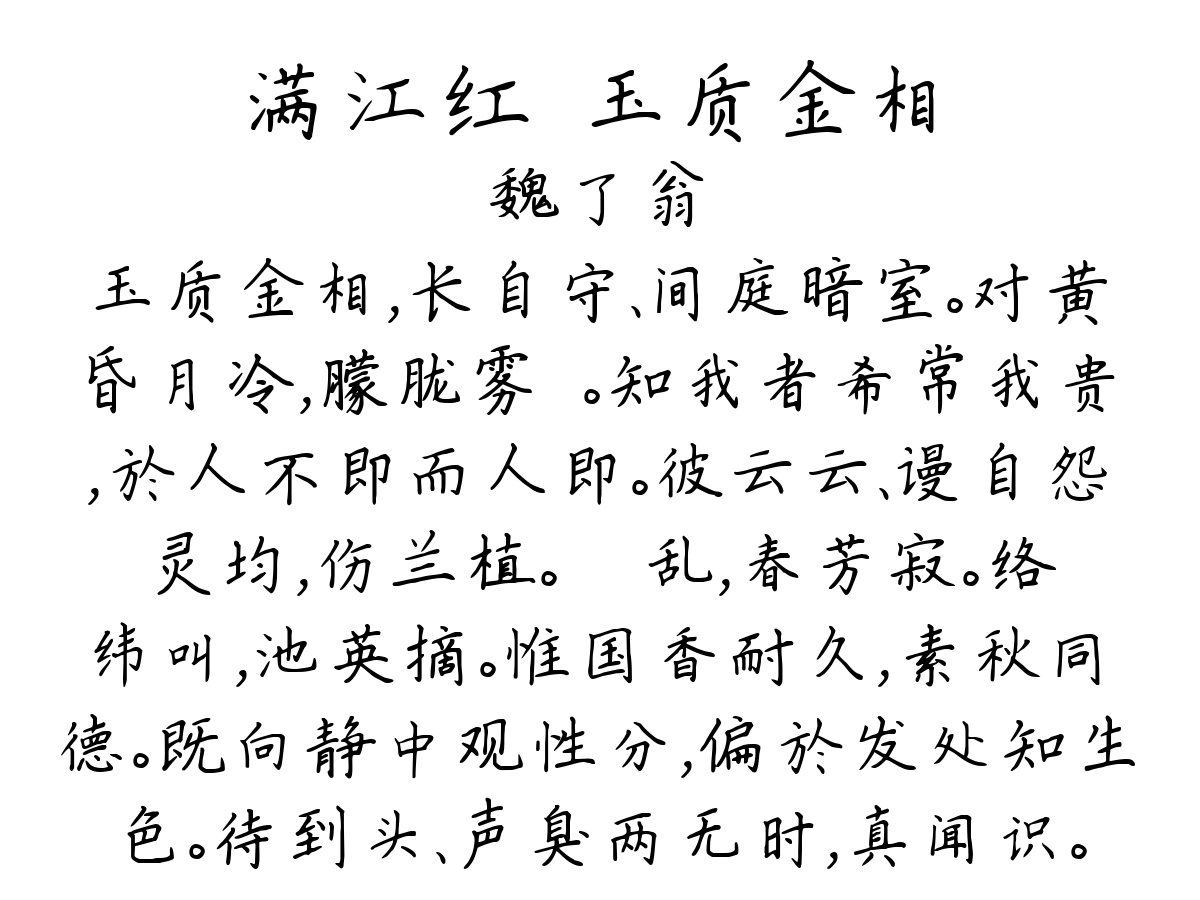 满江红 玉质金相
魏了翁
玉质金相,长自守、间庭暗室。对黄
昏月冷,朦胧雾 。知我者希常我贵
,於人不即而人即。彼云云、谩自怨
灵均,伤兰植。 乱,春芳寂。络
纬叫,池英摘。惟国香耐久,素秋同
德。既向静中观性分,偏於发处知生
色。待到头、声臭两无时,真闻识。